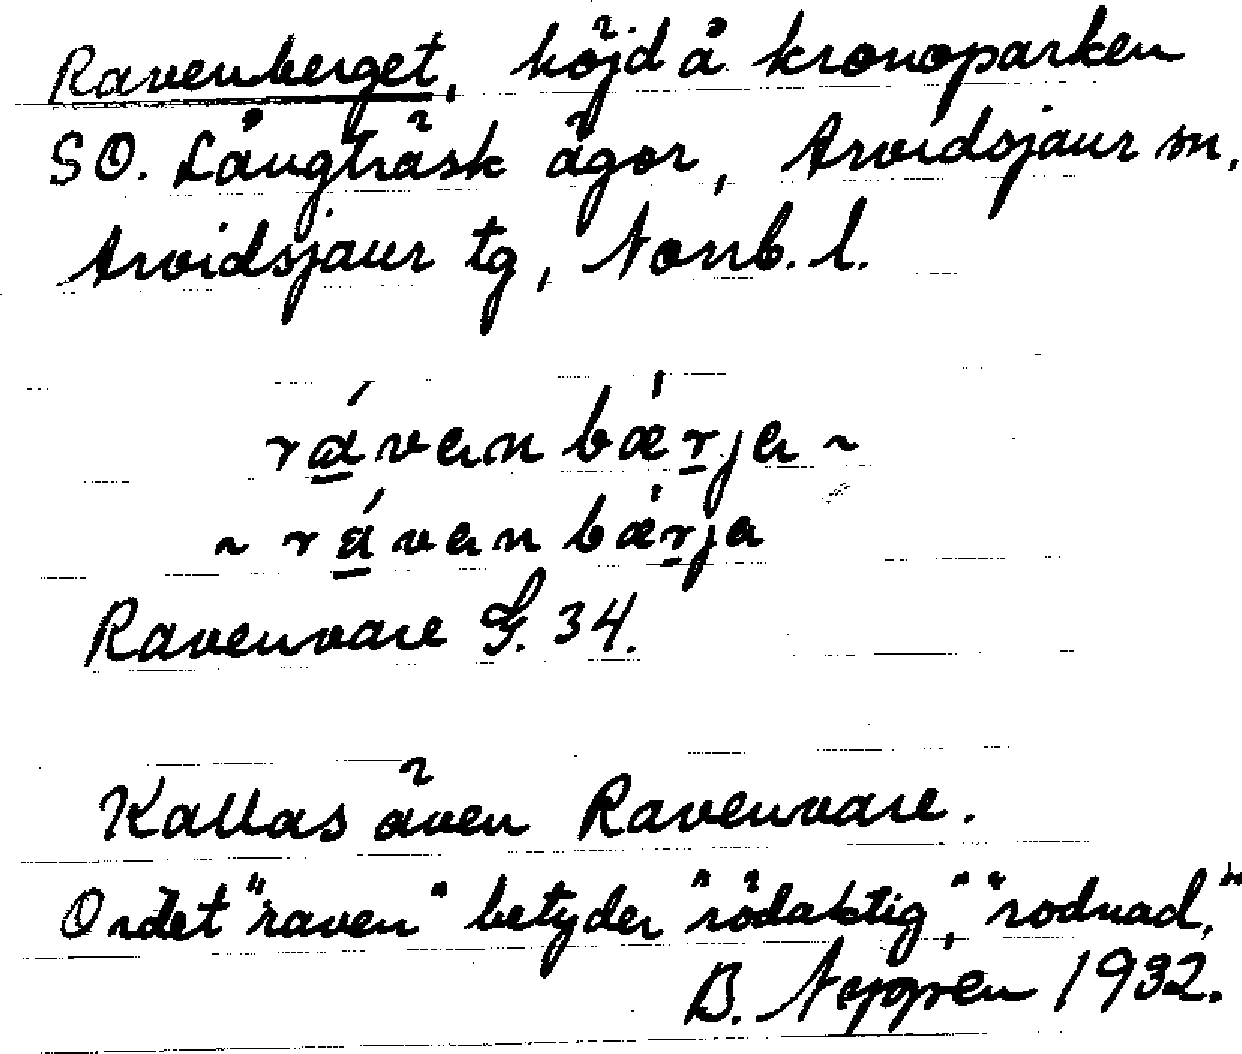 Ravenberget, höjd å kronoparken
SO. Långträsk ägor, Arvidsjaur sn,
Arvidsjaur tg, Norrb. l.
rá̲van bæ̍r̲ja ~
~ rá̲van bæ̍r̲ja
Ravenvare G. 34.
Kallas även Ravenvare.
Ordet "raven" betyder "rödaktig", "rodnad,"
B. 1932.